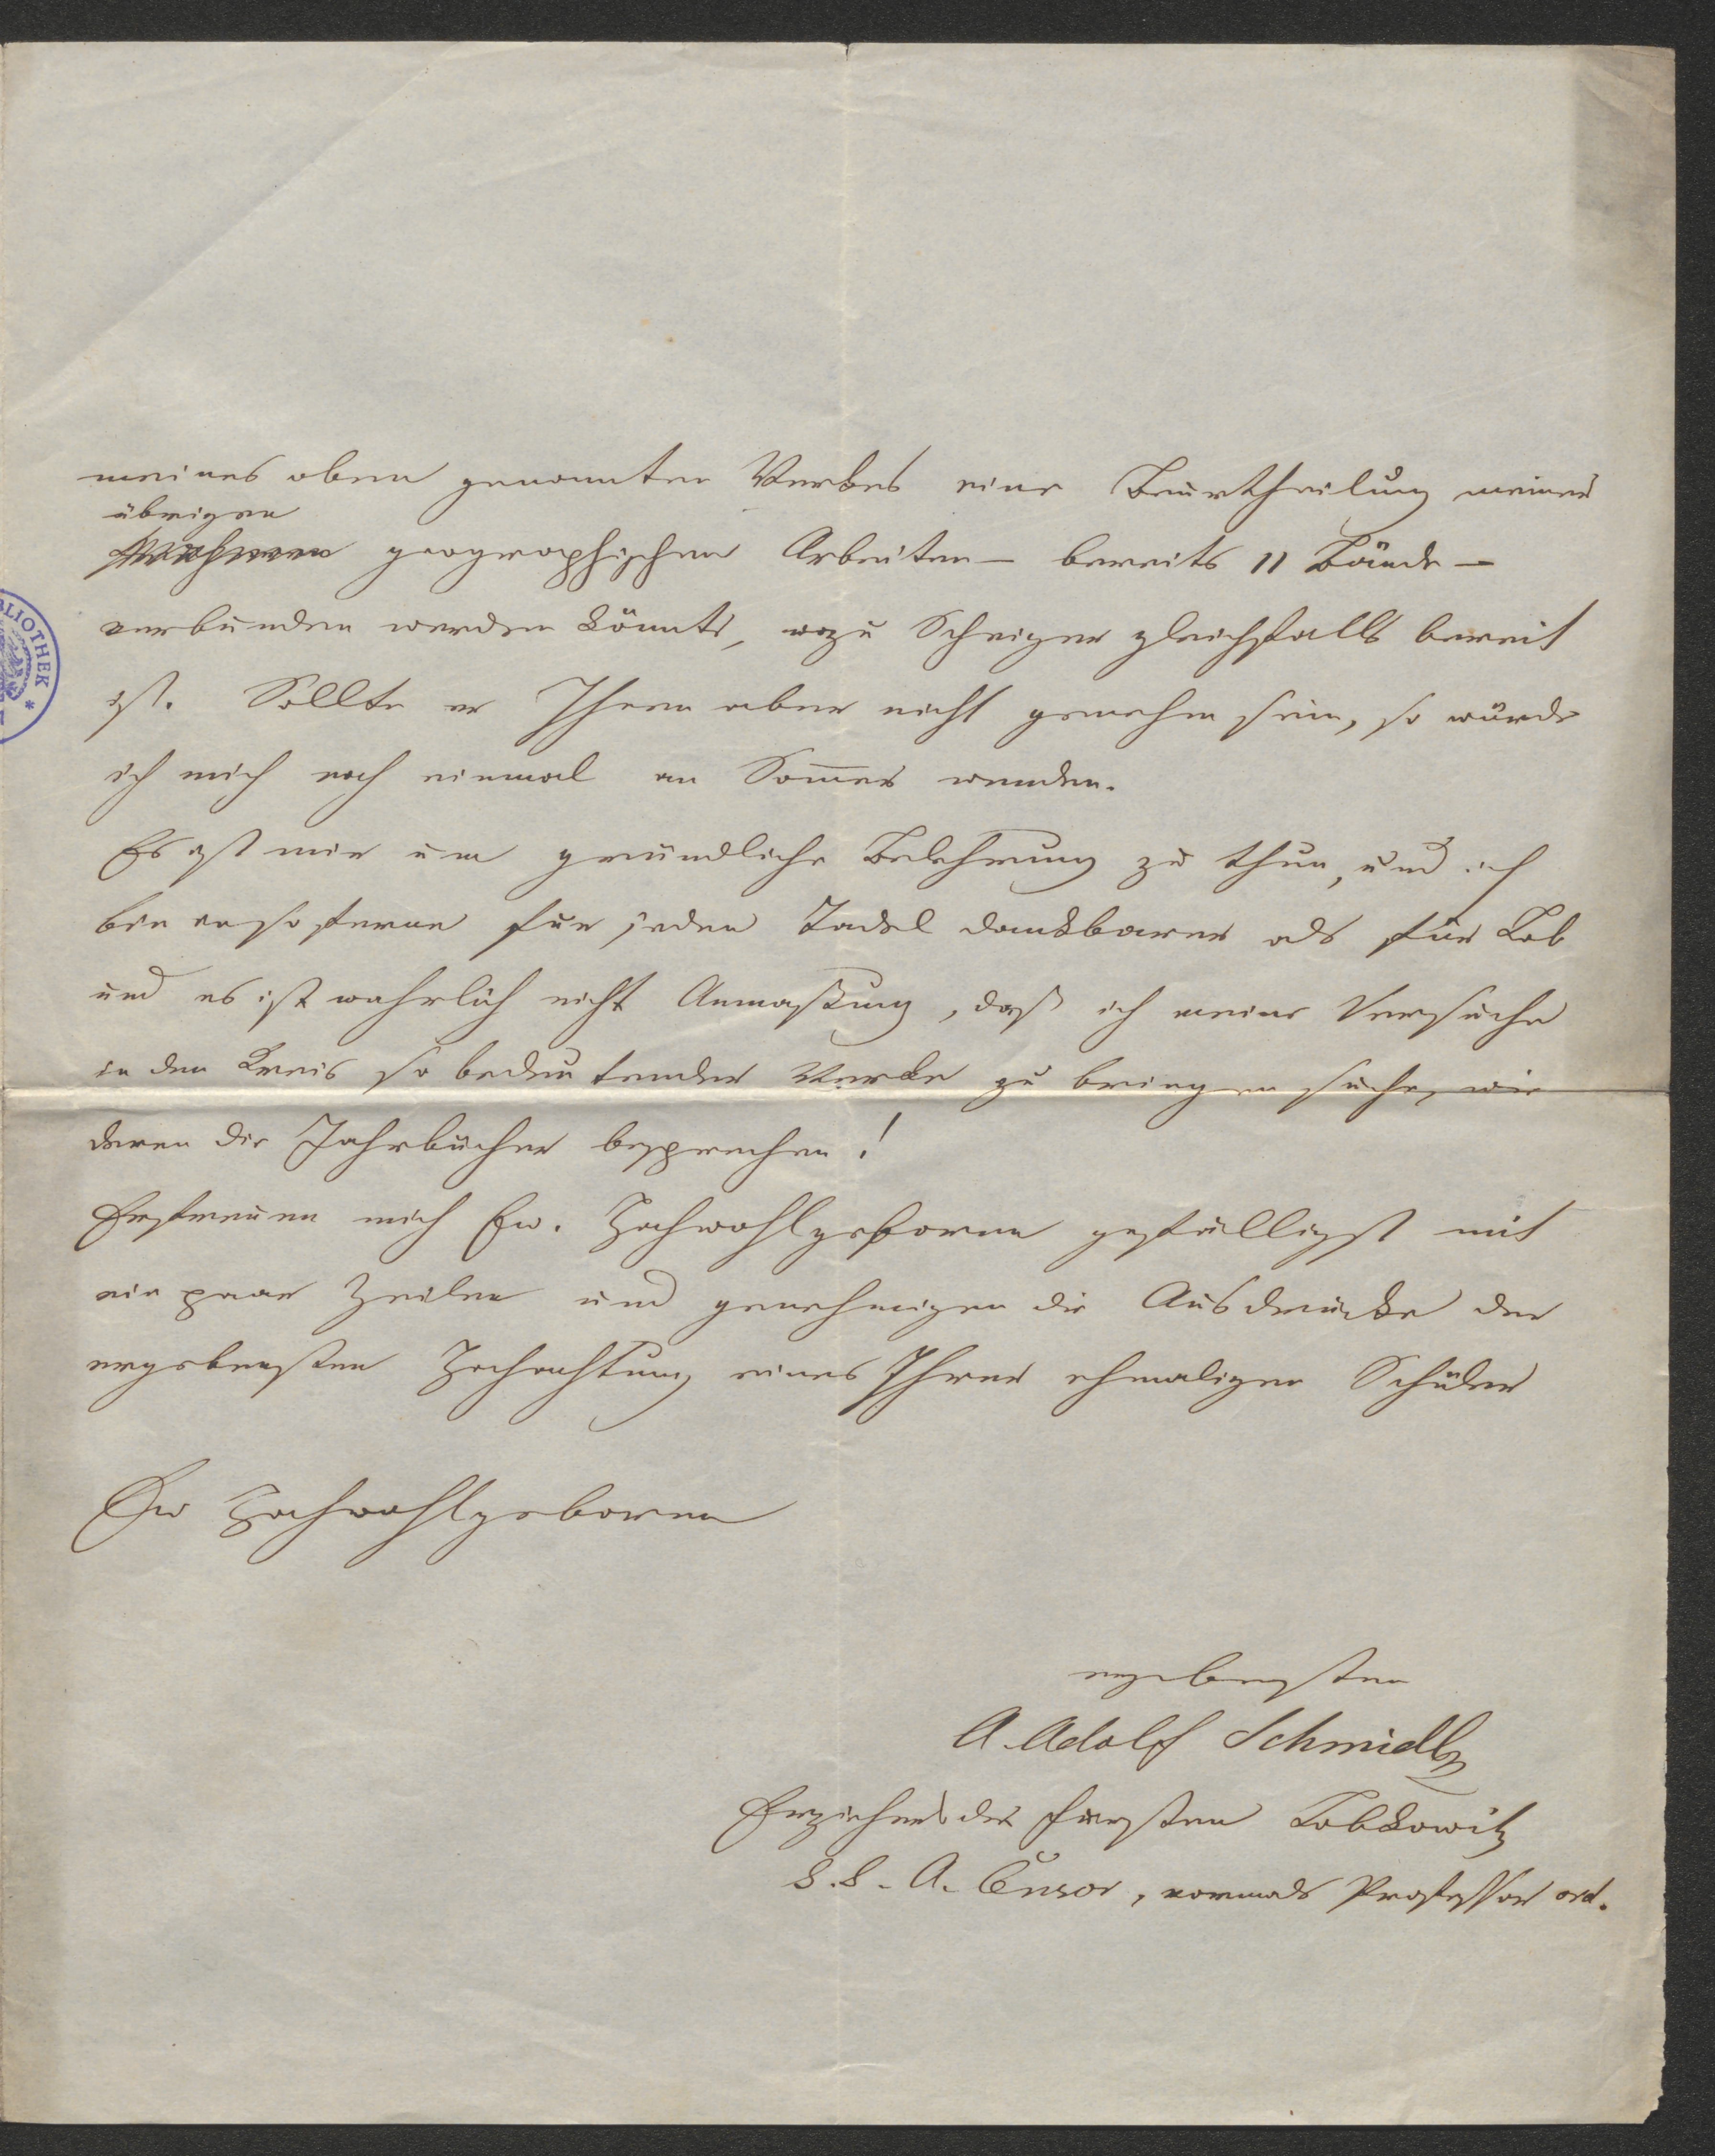 meines oben genannten Werkes eine Beurtheilung meiner
übrigen
geographischen Arbeiten – bereits 11 Bände –
verbunden werden könnte, wozu Scheiger gleichfalls bereit
ist. Sollte er Ihnen aber nicht genehm sein, so würde
ich mich noch einmal an Som̅er wenden.
Es ist mir um gründliche Belehrung zu thun, und ich
bin insoferne für jeden Tadel dankbarer als für Lob
und es ist wahrlich nicht Anmaßung, daß ich meine Versuche
in den Kreis so bedeutender Werke zu bringen suche, wie
deren die Jahrbücher besprechen!
Erfreuen mich Ew. Hochwohlgeboren gefälligst mit
ein paar Zeilen und genehmigen die Ausdrücke der
ergebensten Hochachtung eines Ihrer ehmaligen Schüler
Ew Hochwohlgeboren
ergebensten
A. Adolf Schmidl
Erzieher des Fürsten Lobkowitz
k.k. A. Censor, vormals Professor
BLIOTHEK *